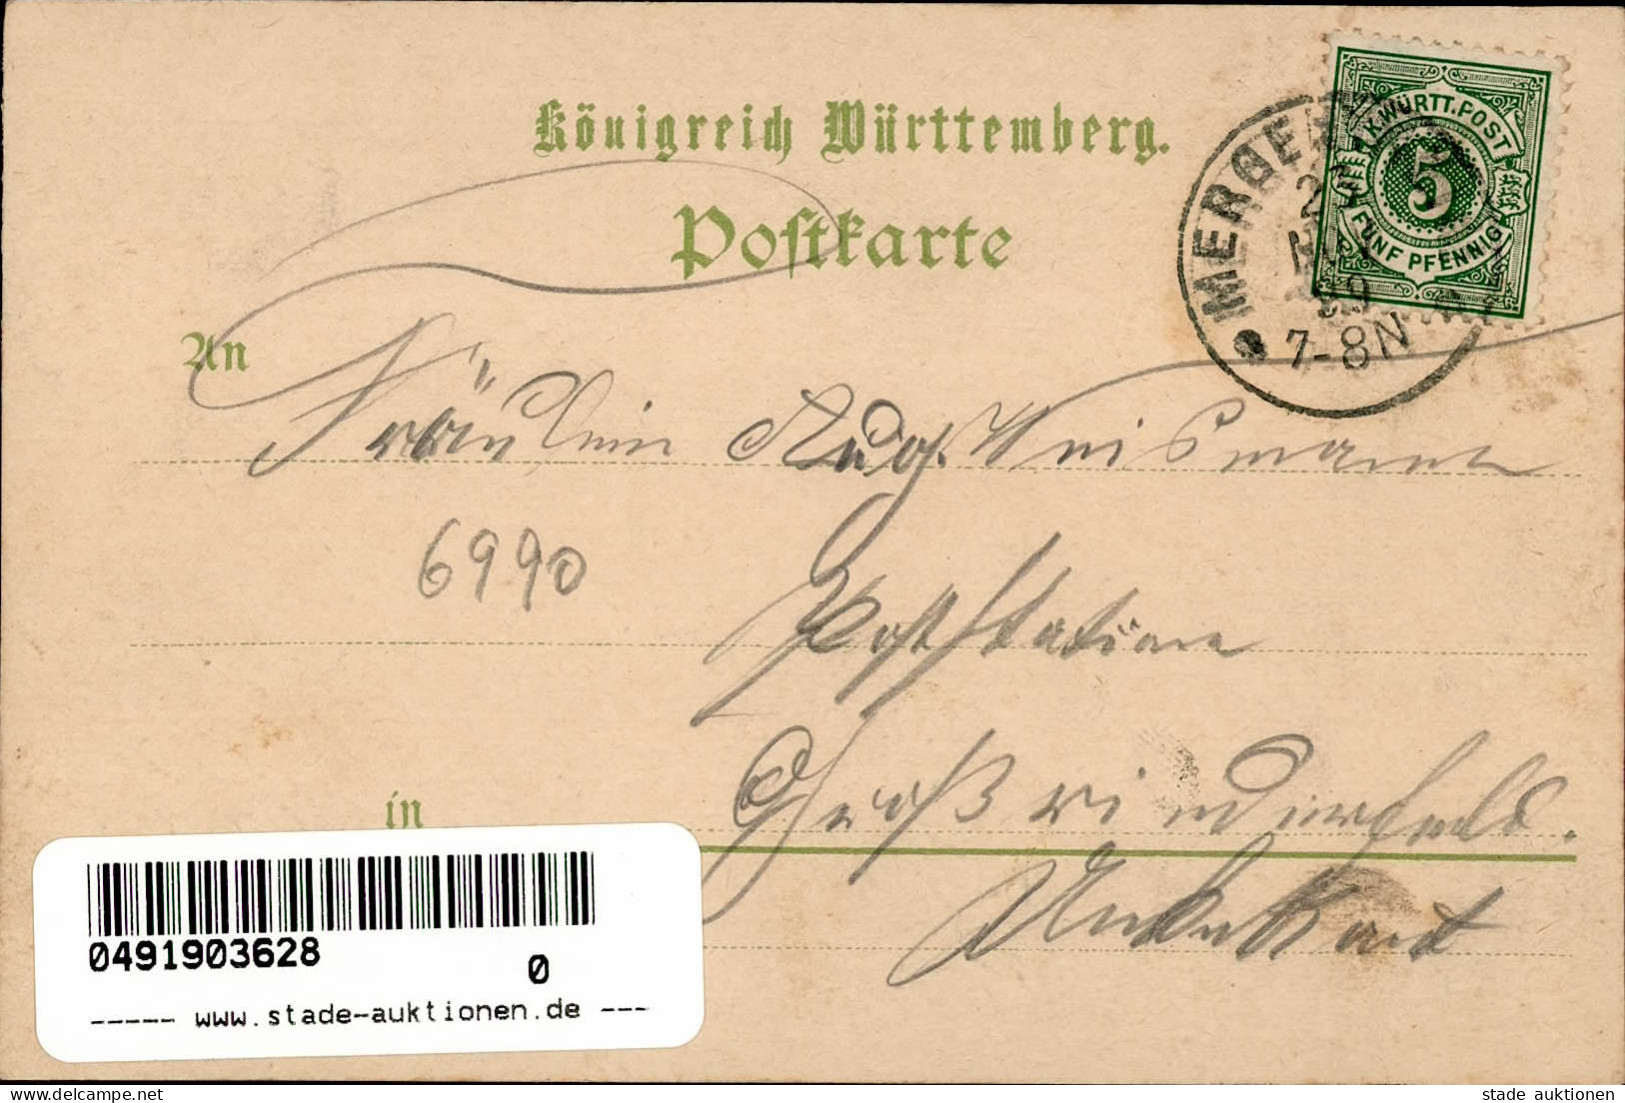 Königreich Württemberg.
Postkarte
K.WÜRTT.POST
5
FÜNF PFENNIG
MERGENT
7-8N
An
Fräulein Aug. Weismann
6990
Poststation
in
Großrinderfeld.
0491903628
0
----- www.stade-auktionen.de ---
stade auktionen